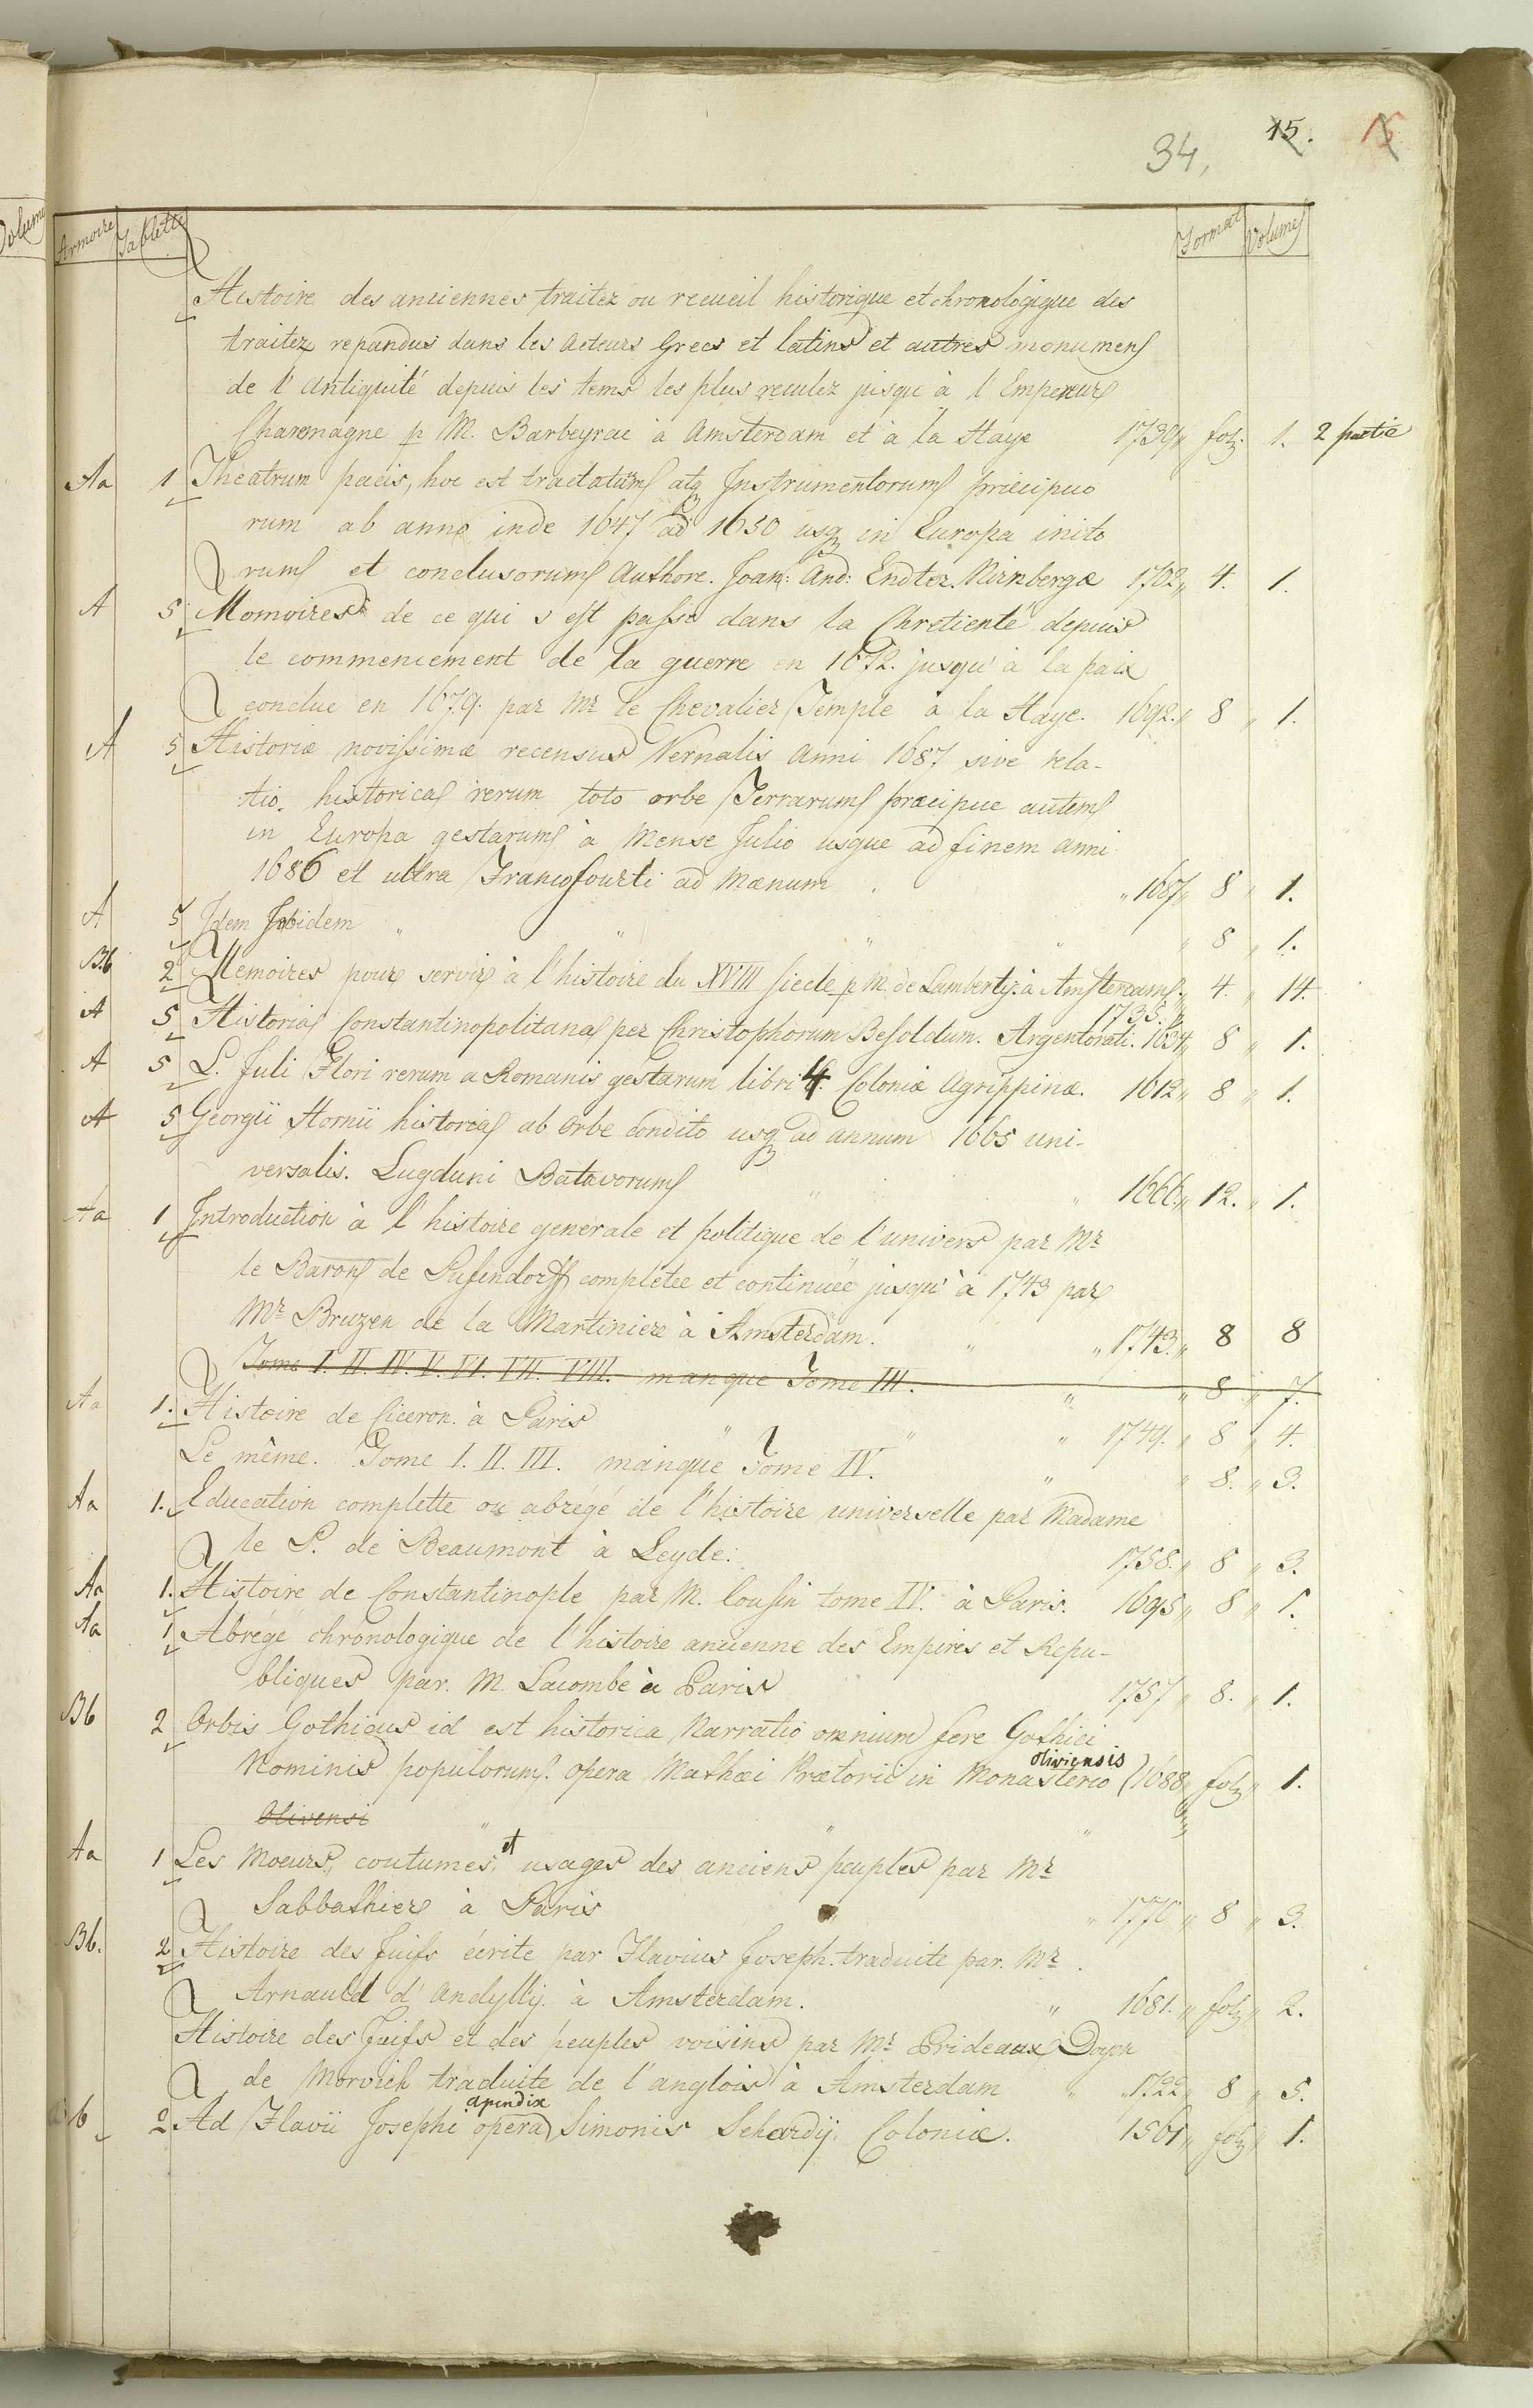 34,
15. 15
Volumes
Armoire Tablette Format Volumes
Histoire des anciennes traitez ou recueil historique et chronologique des
traitez repandus dans les Acteurs Grecs et latins et autres monumens
de l'Antiquité depuis les tems les plus reculez jusqu'à l'Empereur
Charemagne p M. Barbeyrac à Amsterdam et à la Haye 1739 „ fol: 1. 2 partie
Aa 1 Theatrum pacis, hoc est tractatum atq Instrumentorum præcipuo
rum ab anno inde 1647 ad 1650 usq in Europa inito
rum et conclusorum Authore. Joan: And: Endter. Nirnbergæ 1702 „ 4. 1.
A 5 Momoires de ce qui s'est passe dans la Chretienté depuis
le commencement de la guerre en 1672. jusqu'à la paix
conclue en 1679. par Mr le Chevalier Temple à la Haye. 1692. „ 8 „ 1.
A 5 Historiæ novissimæ recensus Vernalis Anni 1687 sive rela-
tio historica rerum toto orbe Terrarum præcipue autem
in Europa gestarum à Mense Julio usque ad finem anni
1686 et ultra Francofourti ad Mænum „ 1687 „ 8 „ 1.
A 5 Idem Ibidem „ „ „ „ „ 8 „ 1.
Bb 2 Memoires pour servir à l'histoire du XVIII siecle p M. de Lamberty. à Amsterdam „ 4. „ 14.
1735. „
A 5 Historia Constantinopolitana per Christophorum Besoldum. Argentorati. 1634 „ 8 „ 1.
A 5 L. Juli Flori rerum a Romanis gestarum libri 4 Coloniæ Agrippinæ. 1612 „ 8 „ 1.
A 5 Georgii Hornii historia ab Orbe condito usq ad annum 1665 uni-
versalis. Lugduni Batavorum „ „ 1666 „ 12. „ 1.
Aa 1 Introduction à l'histoire generale et politique de l'univers par Mr
le Baron de Pufendorff completée et continuée jusqu'à 1743 par
Mr Bruzen de la Martiniere à Amsterdam. „ „ 1743. „ 8 8
Tome I. II. IV. V. VI. VII. VIII. manque Tome III. „ „ 8 „ 7.
Aa 1. Histoire de Ciceron. à Paris „ „ „ 1749. „ 8 „ 4.
Le même. Tome I. II. III. manque Tome IV. „ „ 8. „ 3.
Aa 1. Education complette ou abrégé de l'histoire universelle par Madame
le P. de Beaumont à Leyde. 1758. „ 8 „ 3.
Aa 1. Histoire de Constantinople par M. Cousin tome IV. à Paris. 1695 „ 8 „ 1.
Aa 1 Abrégé chronologique de l'histoire ancienne des Empires et Repu-
bliques par. M. Lacombe à Paris 1757 „ 8. „ 1.
Bb 2 Orbis Gothicus id est historica Narratio omnium fere Gothici
oliviensis
Nominis populorum. opera Mathæi Prætorii in Monasterio (1688 „ fol „ 1.
Olivensi „ „ „
Aa 1 Les Moeurs, coutumes, et usages des anciens peuples par Mr
Sabbathier à Paris „ „ 1770 „ 8 „ 3.
Bb. 2 Histoire des Juifs écrite par Flavius Joseph. traduite par. Mr
Arnauld d'Andylly. à Amsterdam. „ 1681. „ fol „ 2.
Histoire des Juifs et des peuples voisins par Mr Prideaux Doyen
de Norvich traduite de l'anglois à Amsterdam „ „ 1722 „ 8 „ 5.
apendix
b 2 Ad Flavii Josephi opera Simonis Schardij. Coloniæ. 1561 „ fol „ 1.